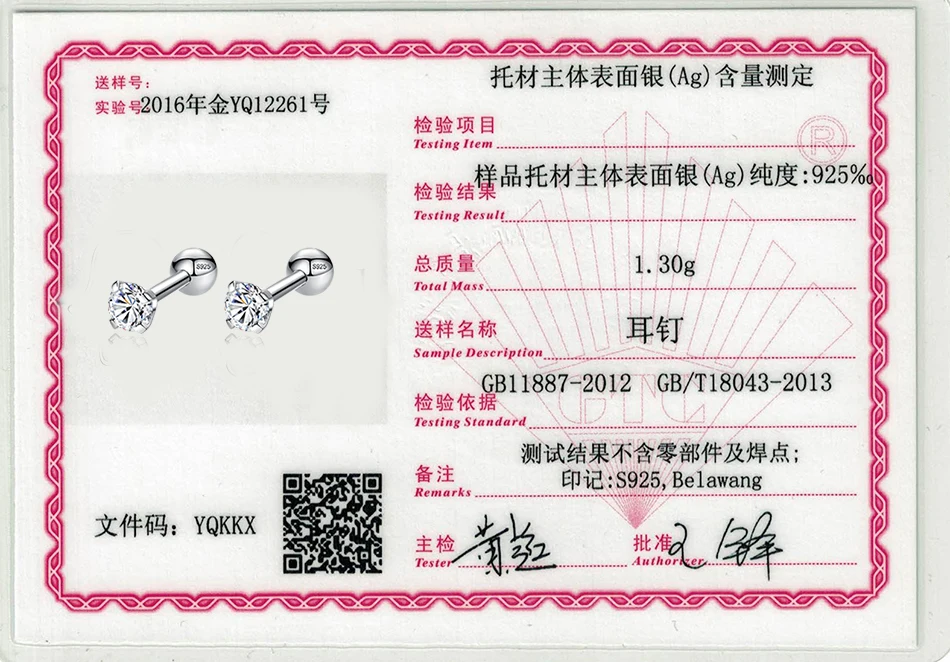 送样号:
实验号2016年金YQ12261号
托材主体表面银(Ag)含量测定
检验项目
Testing Item
®
样品托材主体表面银(Ag)纯度:925‰
检验结果
Testing Result
总质量
1.30g
Total Mass
S925
S925
送样名称
耳钉
Sample Description
GB11887-2012 GB/T18043-2013
检验依据
Testing Standard
GTC
测试结果不含零部件及焊点;
备注
印记:S925,Belawang
Remarks
文件码: YQKKX
主检
Tester
批准
Authorizer